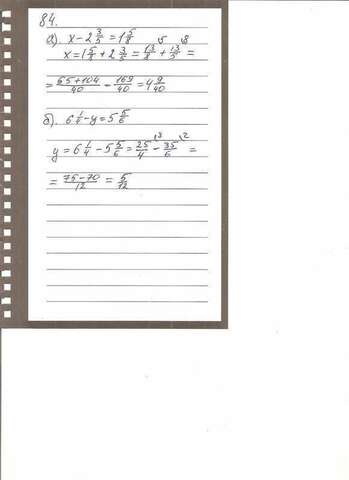 84.
а). x - 2 3/5 = 1 5/8
x = 1 5/8 + 2 3/5 = 13/8 ⁵ + 13/5 ⁸ =
= 65+104/40 - 169/40 = 4 9/40
б). 6 1/4 - y = 5 5/6
y = 6 1/4 - 5 5/6 = 25/4 ³ - 35/6 ² =
= 75-70/12 = 5/12